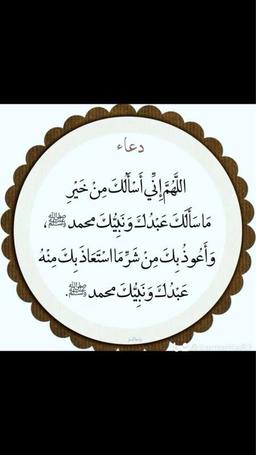 دعاء
اللَّهُمَّ إِنِّي أَسْأَلُكَ مِنْ خَيْرِ
مَا سَأَلَكَ عَبْدُكَ وَنَبِيُّكَ محمد ﷺ،
وَأَعُوذُ بِكَ مِنْ شَرِّ مَا اسْتَعَاذَ بِكَ مِنْهُ
عَبْدُكَ وَنَبِيُّكَ محمد ﷺ.